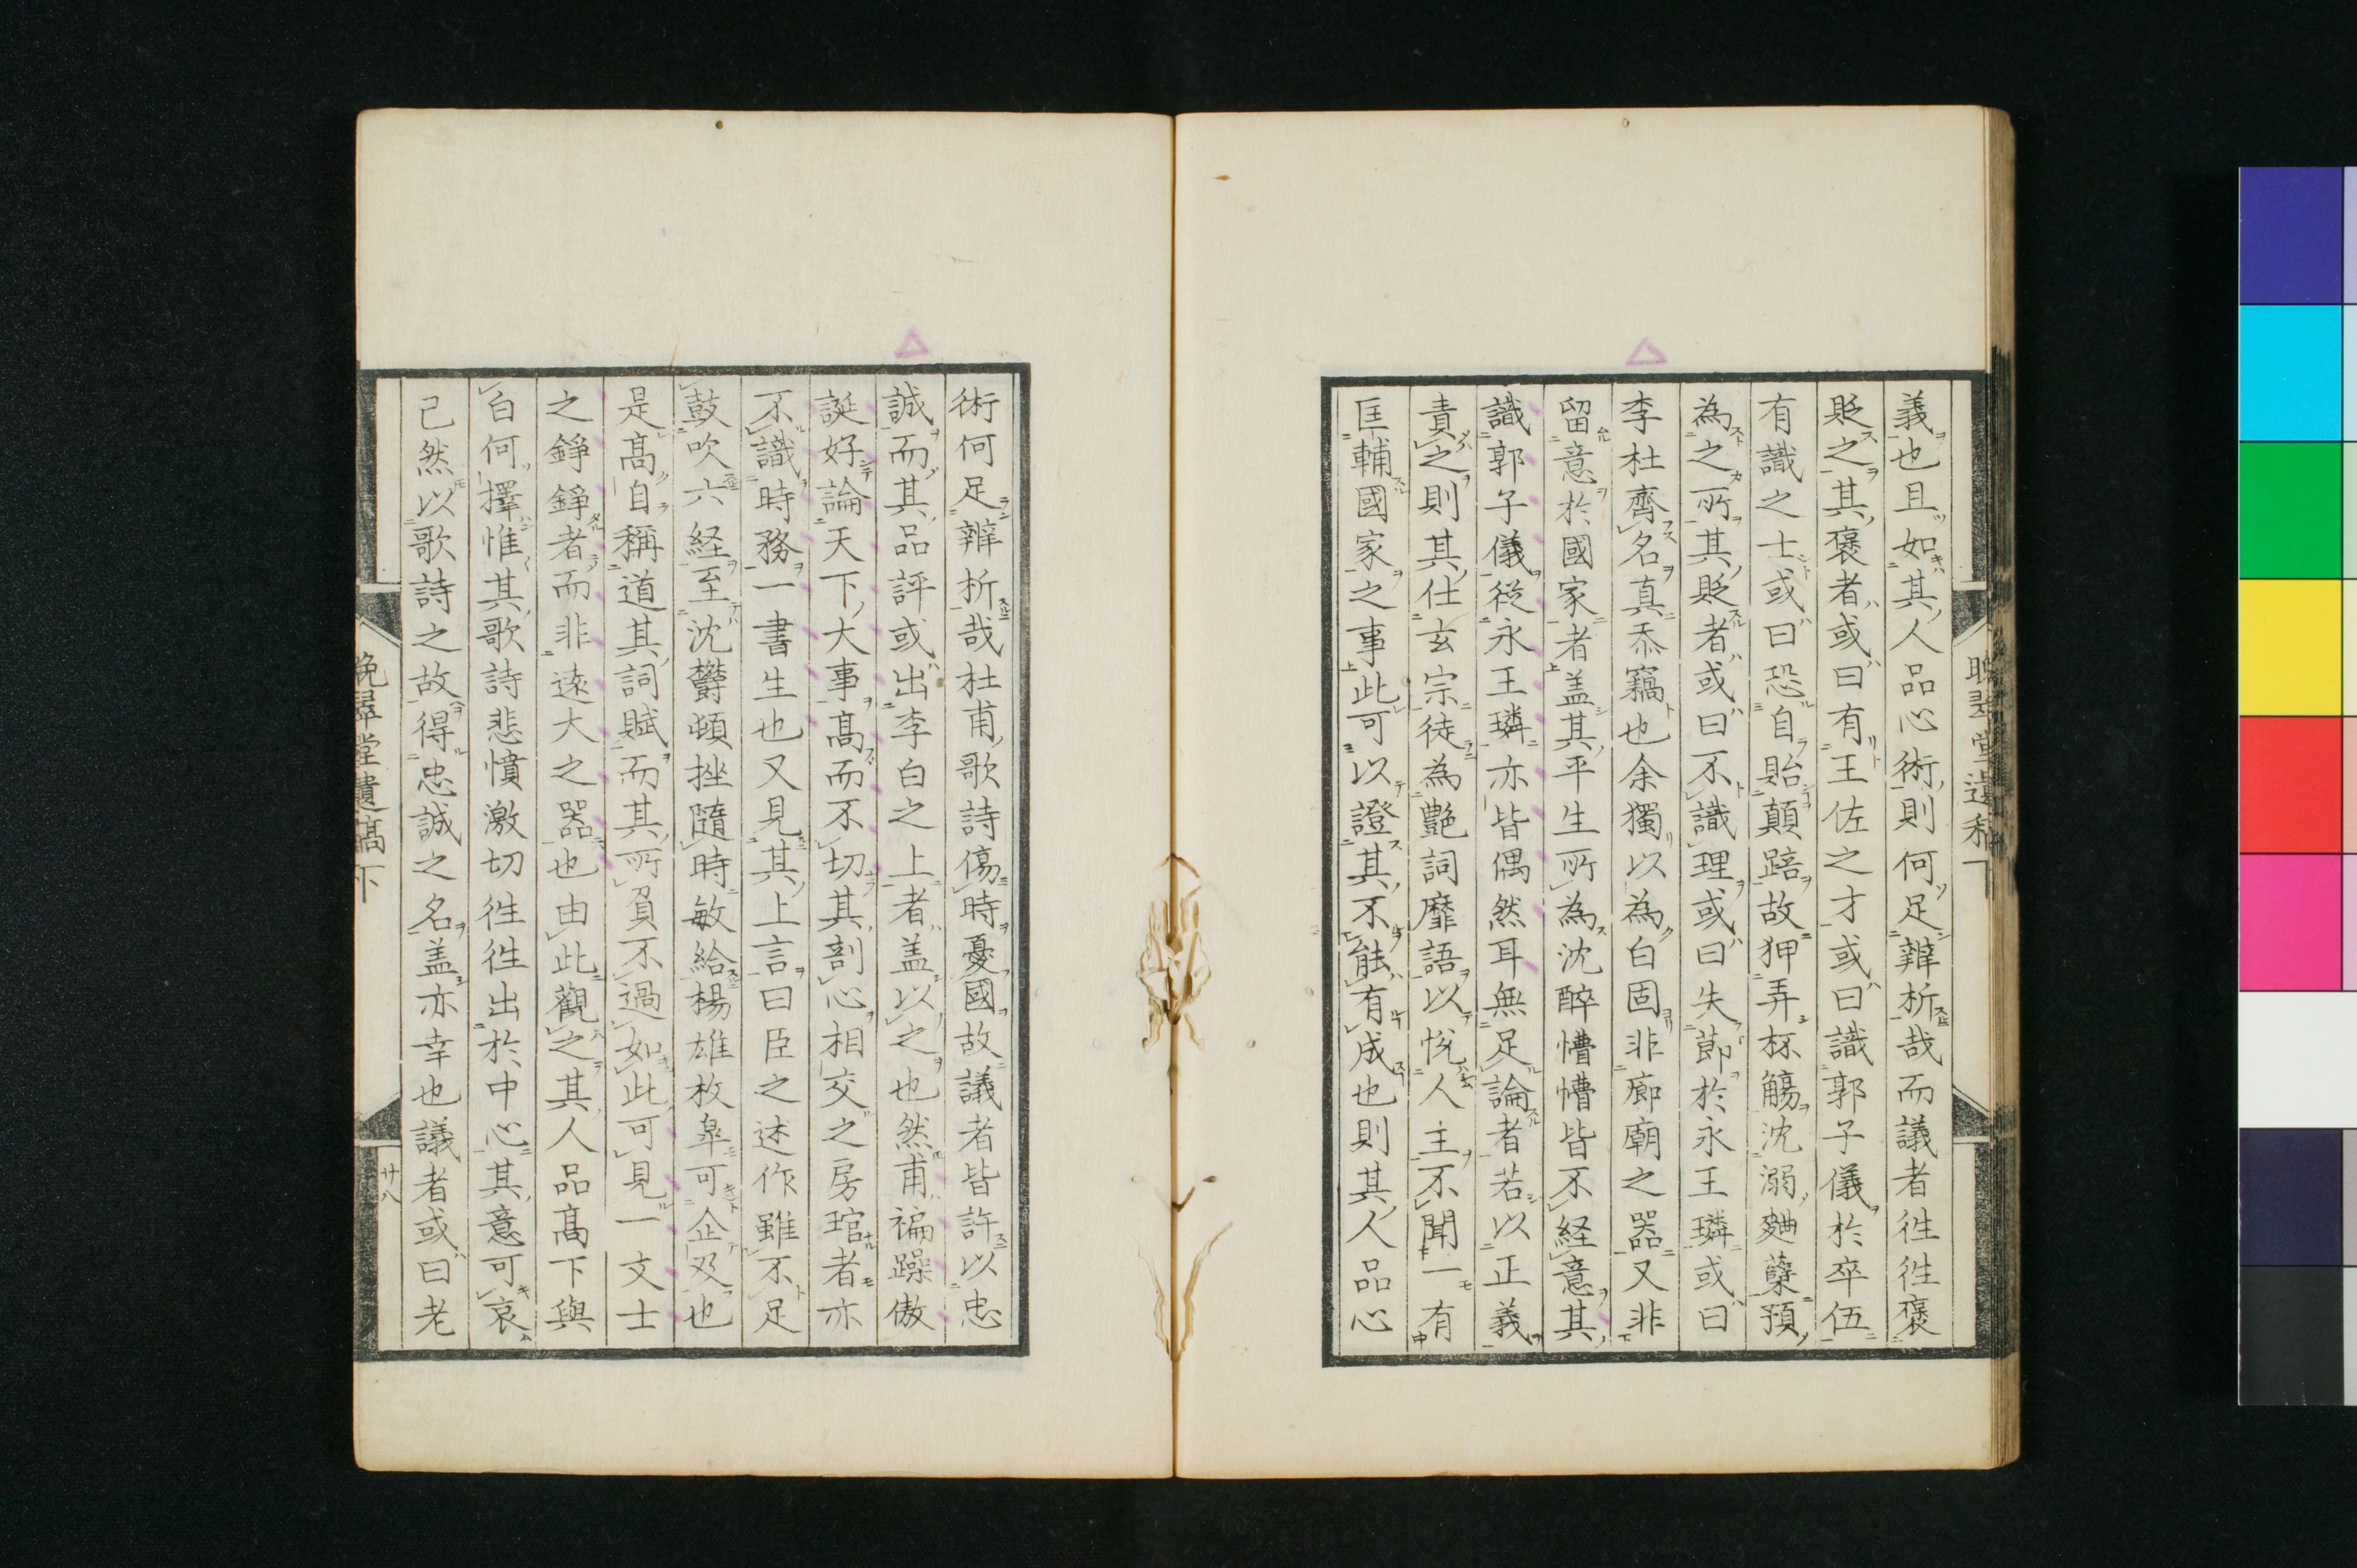 義也且如其人品心術則何足辨析哉而議者徃徃褒
貶之其褒者或曰有王佐之才或曰識郭子儀於卒伍
有識之士或曰恐自貽顛踣故狎弄杯觴沈溺麹蘖預
為之所其貶者或曰不識理或曰失莭於永王璘或曰
李杜齊名真忝竊也余獨以為白固非廊廟之器又非
留意於國家者盖其平生所為沈醉懵懵皆不経意其
識郭子儀從永王璘亦皆偶然耳無足論者若以正義
責之則其仕玄宗徒為艷詞靡語以悅人主不聞一有
匡輔國家之事此可以證其不能有成也則其人品心
術何足辨析哉杜甫歌詩傷時憂國故議者皆許以忠
誠而其品評或出李白之上者盖以之也然甫褊躁傲
誕好論天下大事高而不切其剖心相交之房琯者亦
不識時務一書生也又見其上言曰臣之述作雖不足
鼓吹六経至沈欝頓挫隨時敏給楊雄枚皐可企及也
是髙自稱道其詞賦而其所負不過如此可見一文士
之錚錚者而非遠大之器也由此觀之其人品髙下與
白何擇惟其歌詩悲憤激切徃徃出於中心其意可哀
已然以歌詩之故得忠誠之名盖亦幸也議者或曰老
晩翠堂遺稿下
廿八